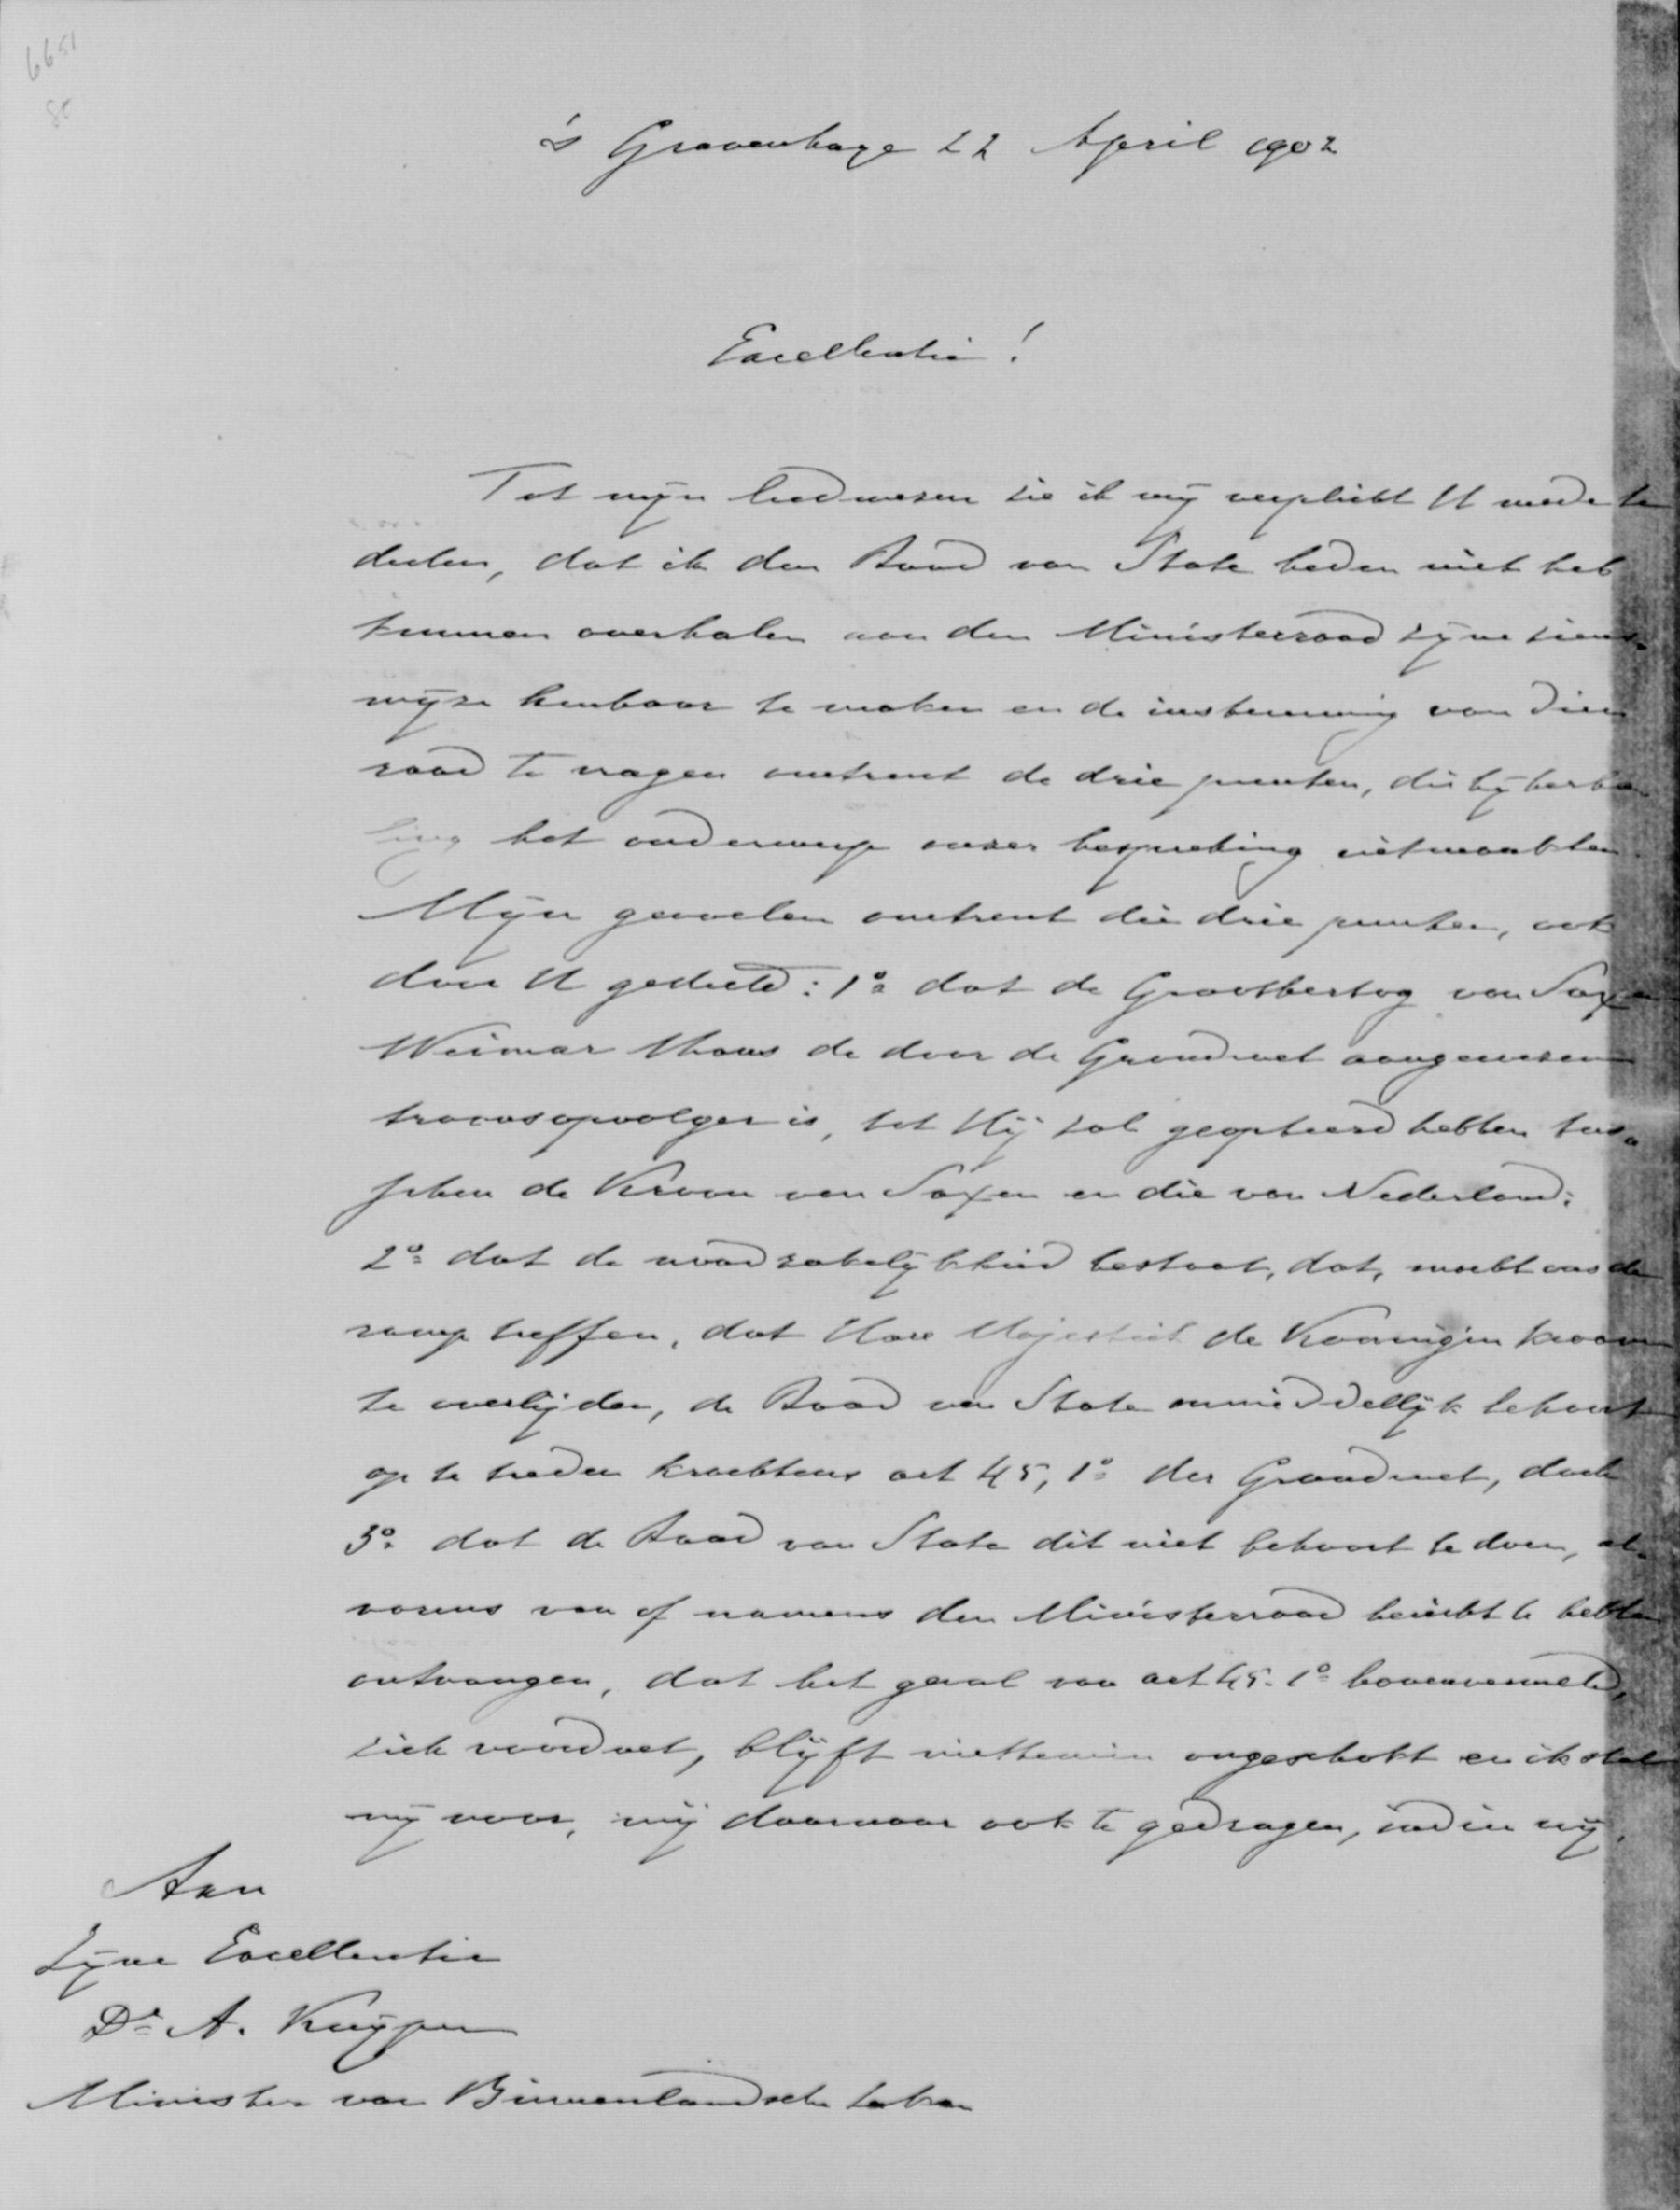 6651
's Gravenhage 22 April 1902
Excellentie!
Tot mijn leedwezen zie ik mij verplicht U mede te
deelen, dat ik den Raad van State heden niet heb
kunnen overhalen aan den Ministerraad zijne ziens-
wijze kenbaar te maken en de instemming van dien
raad te vragen omtrent de drie punten, die bij herha-
ling het onderwerp onzer bespreking uitmaakten.
Mijn gevoelen omtrent die drie punten, ook
door U gedeeld: 1o dat de Groothertog van Saxen
Weimar thans de door de Grondwet aangewezen
troonsopvolger is, tot Hij zal geopteerd hebben tus-
schen de Kroon van Saxen en die van Nederland;
2o dat de noodzakelijkheid bestaat, dat, mocht ons de
ramp treffen, dat Hare Majesteit de Koningin kwam
te overlijden, de Raad van State onmiddellijk behoort
op te treden krachtens art 45, 1o der Grondwet, doch
3o dat de Raad van State dit niet behoort te doen, al-
vorens van of namens den Ministerraad bericht te hebben
ontvangen, dat het geval van art 45. 1o bovenvermeld,
zich voordoet, blijft niettemin ongeschokt en ik stel
mij voor, mij daarnaar ook te gedragen, indien mij,
Aan
Zijne Excellentie
Dr A. Kuyper
Minister van Binnenlandsche Zaken